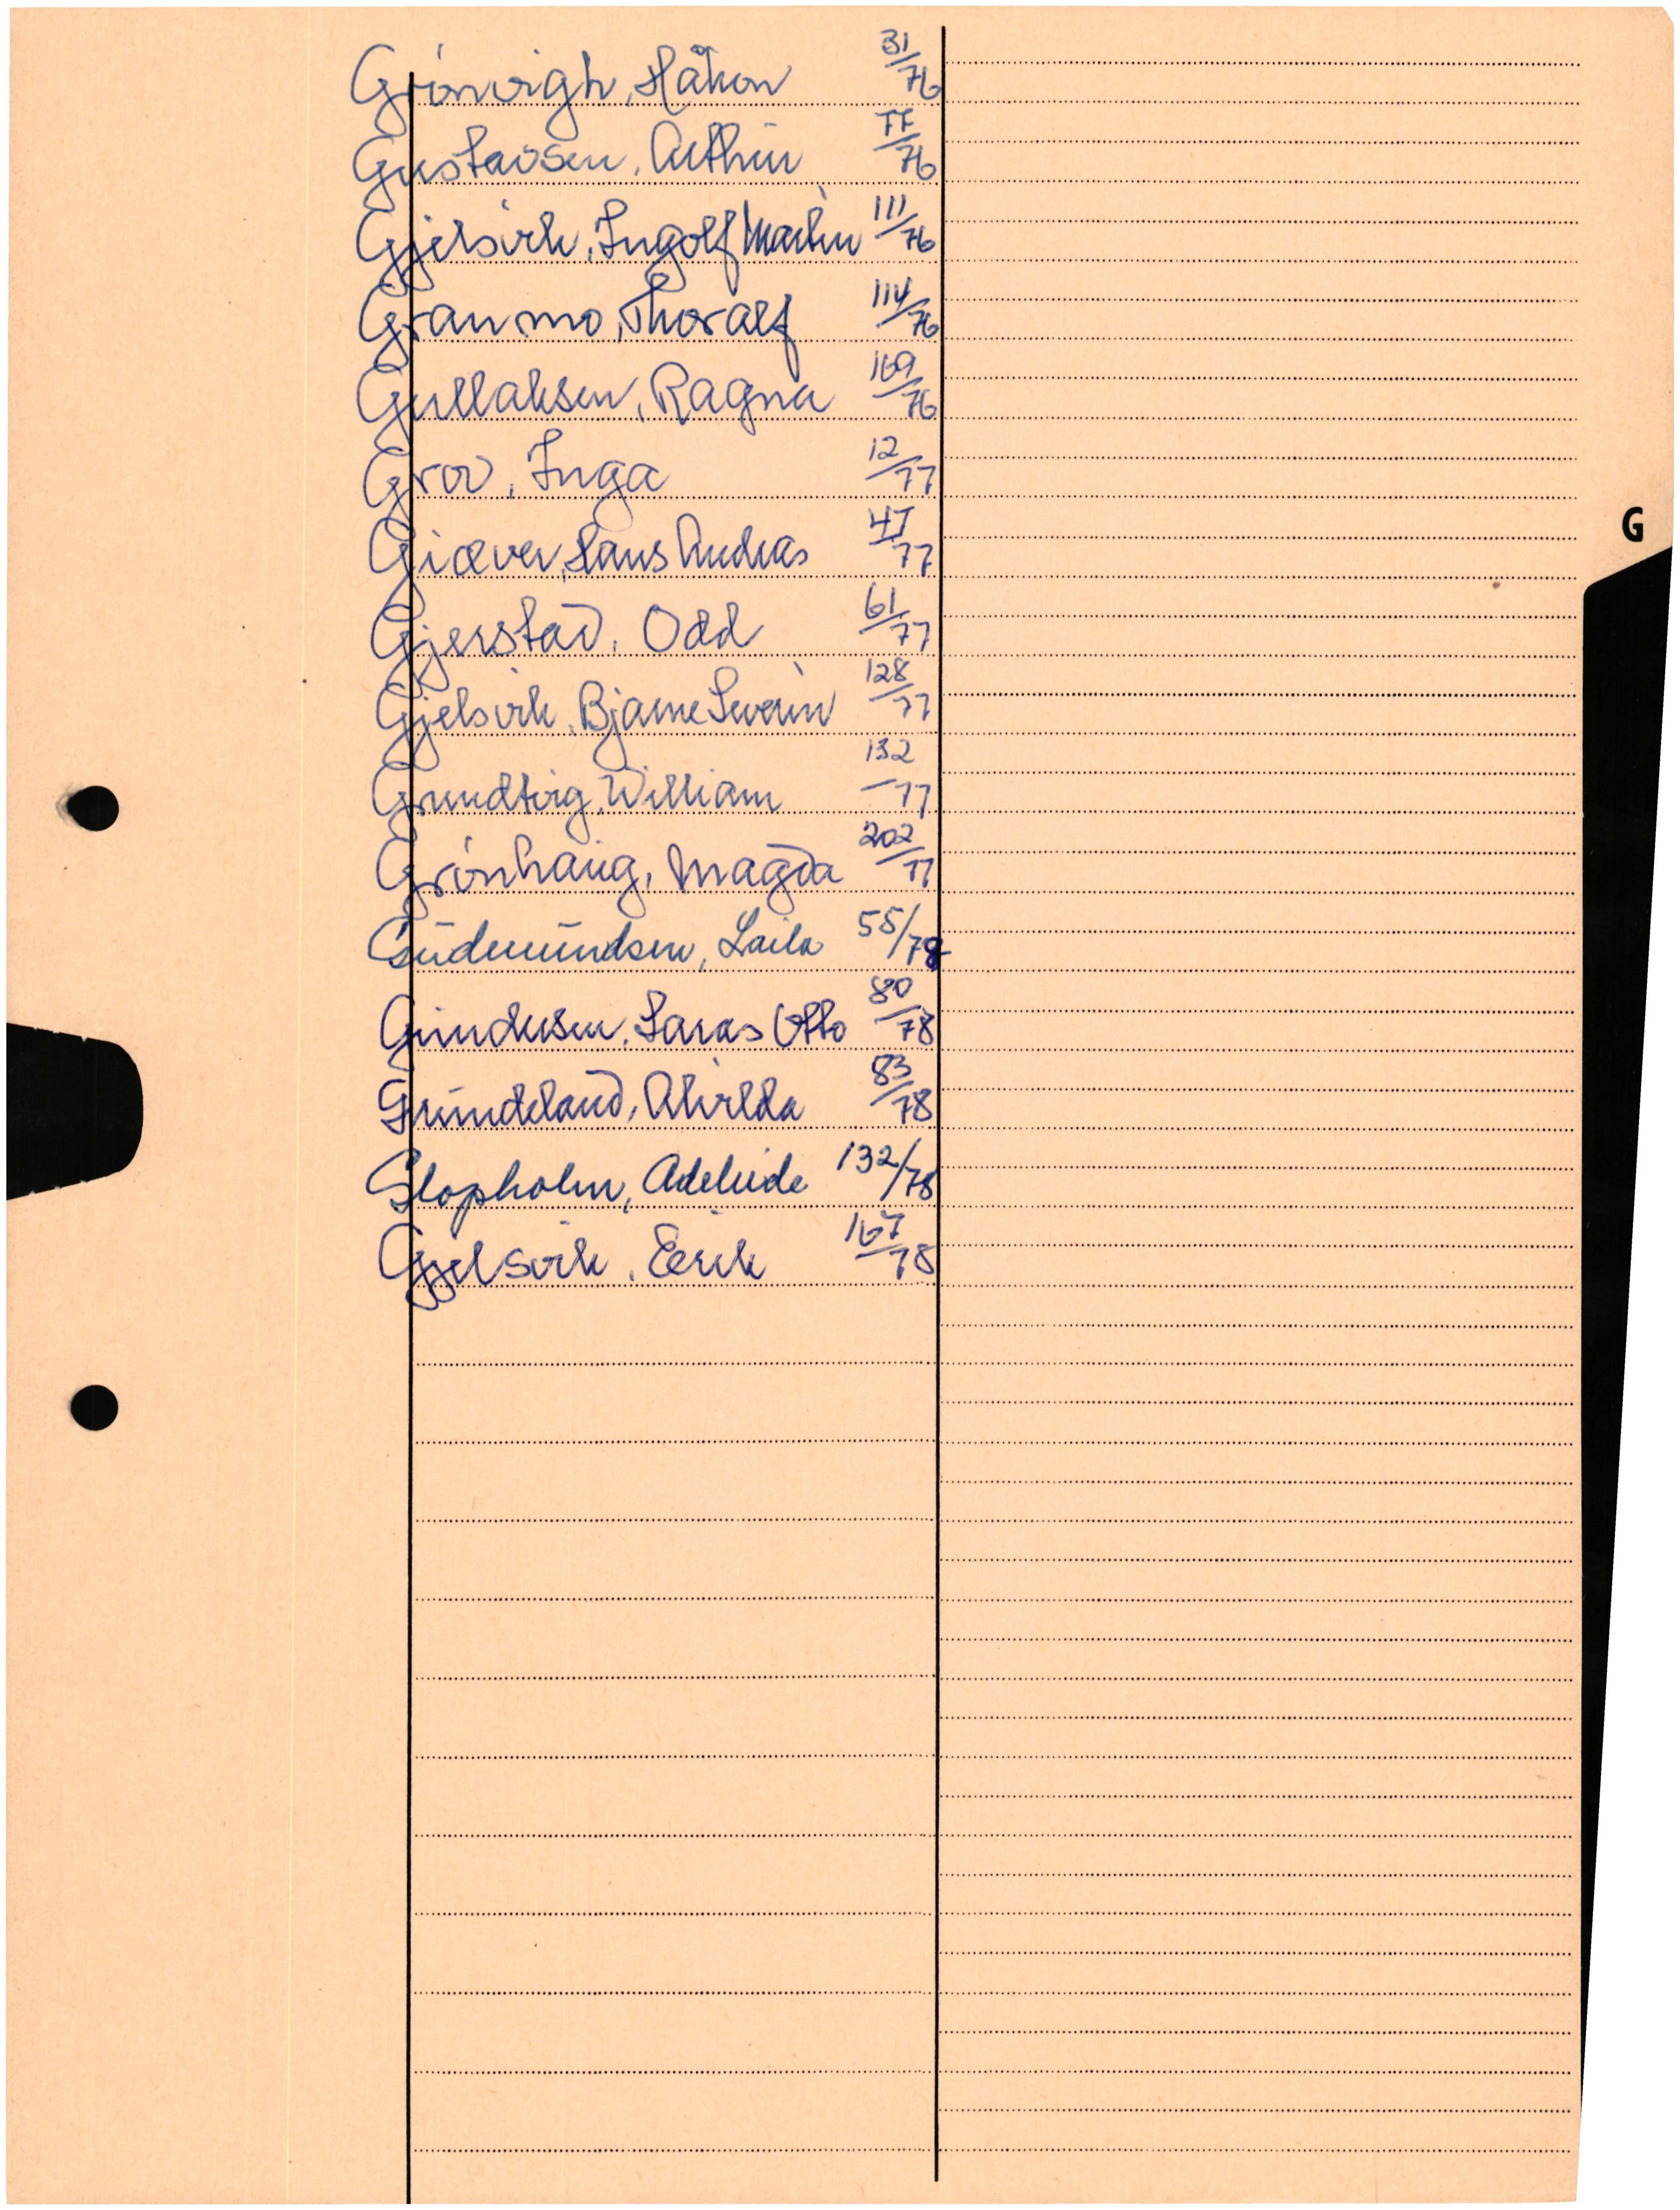 Grønvigh, Håkon 31/76
Gustavsen, Arthur 77/76
Gjelsvik, Ingolf Martin 111/76
Granmo, Thoralf 114/76
Gullaksen, Ragna 169/76
Grov, Inga 12/77
Giæver, Hans Andreas 47/77
Gjerstad, Odd 61/77
Gjelsvik, Bjarne Severin 128/77
Grundtvig, William 132/77
Grønhaug, Magda 202/77
G
Gudmundsen, Laila 55/78
Gundersen, Otto 80/78
Grindeland, Alvilda 83/78
Adeleide 132/78
Gjelsvik, Eerik 167/78